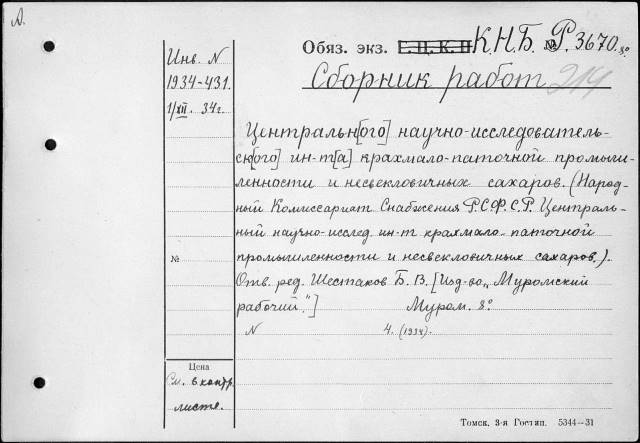 А.
Обяз. экз. Г.Ц.К.П К.Н.Б. № Р. 3670. 8о.
Сборник работ 214
Инв. N
1934-431.
1/XII. 34г.
Центральн[ого] научно-исследователь-
ск[ого] ин-т[а] крахмало-паточной промыш-
ленности и несвекловичных сахаров. (Народ-
ный Комиссариат Снабжения Р.С.Ф.С.Р. Централь-
ный научно-исслед. ин-т крахмало-паточной
промышленности и несвекловичных сахаров.).
Отв. ред. Шестаков Б. В. [Изд-во „Муромский
рабочий."] Муром. 8о.
N 4. (1934).
№
Цена
См. в контр.
листе.
Томск, 3-я Гостип. 5344—31